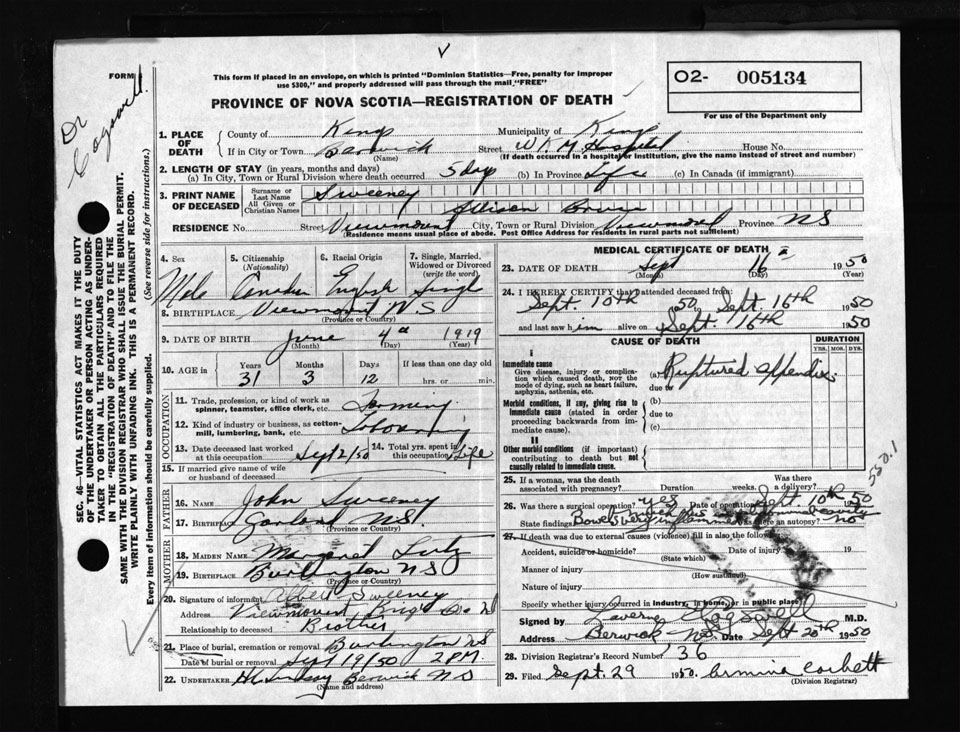 FORM
Dr Cogswell.
This form if placed in an envelope, on which is printed "Dominion Statistics—Free, penalty for improper
use $300," and properly addressed will pass through the mail "FREE"
PROVINCE OF NOVA SCOTIA—REGISTRATION OF DEATH
O2- 005134
For use of the Department only
SEC. 46—VITAL STATISTICS ACT MAKES IT THE DUTY
OF THE UNDERTAKER OR PERSON ACTING AS UNDER-
TAKER TO OBTAIN ALL THE PARTICULARS REQUIRED
IN THE "REGISTRATION OF DEATH" AND TO FILE THE
SAME WITH THE DIVISION REGISTRAR WHO SHALL ISSUE THE BURIAL PERMIT.
WRITE PLAINLY WITH UNFADING INK. THIS IS A PERMANENT RECORD.
Every item of information should be carefully supplied. (See reverse side for instructions.)
1. PLACE OF DEATH County of Kings Municipality of Kings
If in City or Town Berwick (Name) Street WKM Hospital House No.
(If death occurred in a hospital or institution, give the name instead of street and number)
2. LENGTH OF STAY (in years, months and days)
(a) In City, Town or Rural Division where death occurred 5 days (b) In Province Life (c) In Canada (if immigrant)
3. PRINT NAME OF DECEASED Surname or Last Name Sweeney
All Given or Christian Names Allison Bruce
RESIDENCE No. Street Viewmount City, Town or Rural Division Viewmount Province NS
(Residence means usual place of abode. Post Office Address for residents in rural parts not sufficient)
4. Sex Male
5. Citizenship (Nationality) Canadian
6. Racial Origin English
7. Single, Married, Widowed or Divorced (write the word) Single
8. BIRTHPLACE Viewmount N.S (Province or Country)
9. DATE OF BIRTH June (Month) 4 (Day) 1919 (Year)
10. AGE in Years 31 Months 3 Days 12 If less than one day old hrs. or min.
OCCUPATION
11. Trade, profession, or kind of work as spinner, teamster, office clerk, etc. Farming
12. Kind of industry or business, as cotton-mill, lumbering, bank, etc. Labouring
13. Date deceased last worked at this occupation Sept 2/50 14. Total yrs. spent in this occupation Life
15. If married give name of wife or husband of deceased
FATHER
16. NAME John Sweeney
17. BIRTHPLACE Garland N.S. (Province or Country)
MOTHER
18. MAIDEN NAME Margaret Lutz
19. BIRTHPLACE Burlington NS (Province or Country)
20. Signature of informant Albert Sweeney
Address Viewmount, Kings Co N
Relationship to deceased Brother
21. Place of burial, cremation or removal Burlington NS
Date of burial or removal Sept 19/50 2 PM
22. UNDERTAKER H Lindsay Berwick NS
(Name and address)
MEDICAL CERTIFICATE OF DEATH
23. DATE OF DEATH Sept (Month) 16 (Day) 1950 (Year)
24. I HEREBY CERTIFY that I attended deceased from:
Sept. 10th 1950 to Sept. 16th 1950
and last saw him alive on Sept. 16th 1950
CAUSE OF DEATH
DURATION
YRS. MOS. DYS.
I
Immediate cause
Give disease, injury or complication which caused death, not the mode of dying, such as heart failure, asphyxia, asthenia, etc.
(a) Ruptured appendix
due to
Morbid conditions, if any, giving rise to immediate cause (stated in order proceeding backwards from immediate cause).
(b)
due to
(c)
II
Other morbid conditions (if important) contributing to death but not causally related to immediate cause.
550.1
25. If a woman, was the death associated with pregnancy? Duration weeks. Was there a delivery?
26. Was there a surgical operation? yes Date of operation Sept. 10th 50
State findings Bowel very inflamed Was there an autopsy? No
27. If death was due to external causes (violence) fill in also the following:
Accident, suicide or homicide? (State which) Date of injury 19
Manner of injury (How sustained)
Nature of injury
Specify whether injury occurred in industry, in home, or in public place
Signed by Laverne Cogswell M.D.
Address Berwick N.S. Date Sept 20th 1950
28. Division Registrar's Record Number 36
29. Filed Sept. 29 1950. Armina Corbett
(Division Registrar)